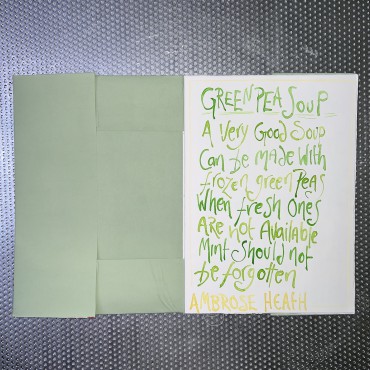 GREEN PEA SOUP
A Very Good Soup
Can be made With
frozen green Peas
When fresh Ones
Are not Available
Mint Should not
be forgotten
AMBROSE HEATH